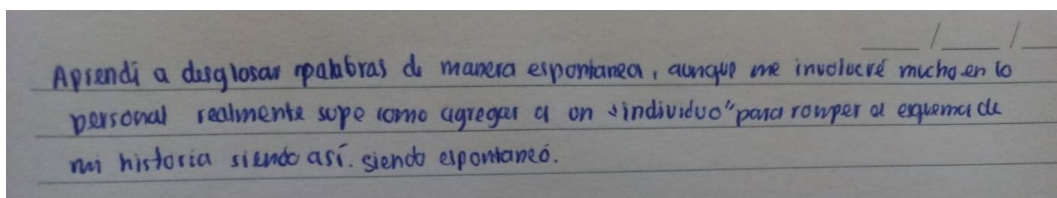 Aprendí a desglosar palabras de manera espontanea, aunque me involucré mucho en lo
personal realmente supe como agregar a on "individuo" para romper el esquema de
mi historia siendo así. siendo espontaneó.